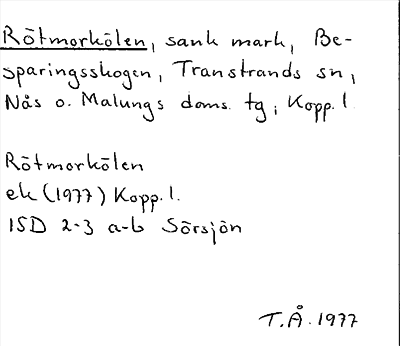 Rötmorkölen, sank mark, Be-
sparingsskogen, Transtrands sn,
Nås o. Malungs doms. tg, Kopp. l.
Rötmorkölen
ek (1977) Kopp. l.
15D 2-3 a-b Sörsjön
T.Å. 1977